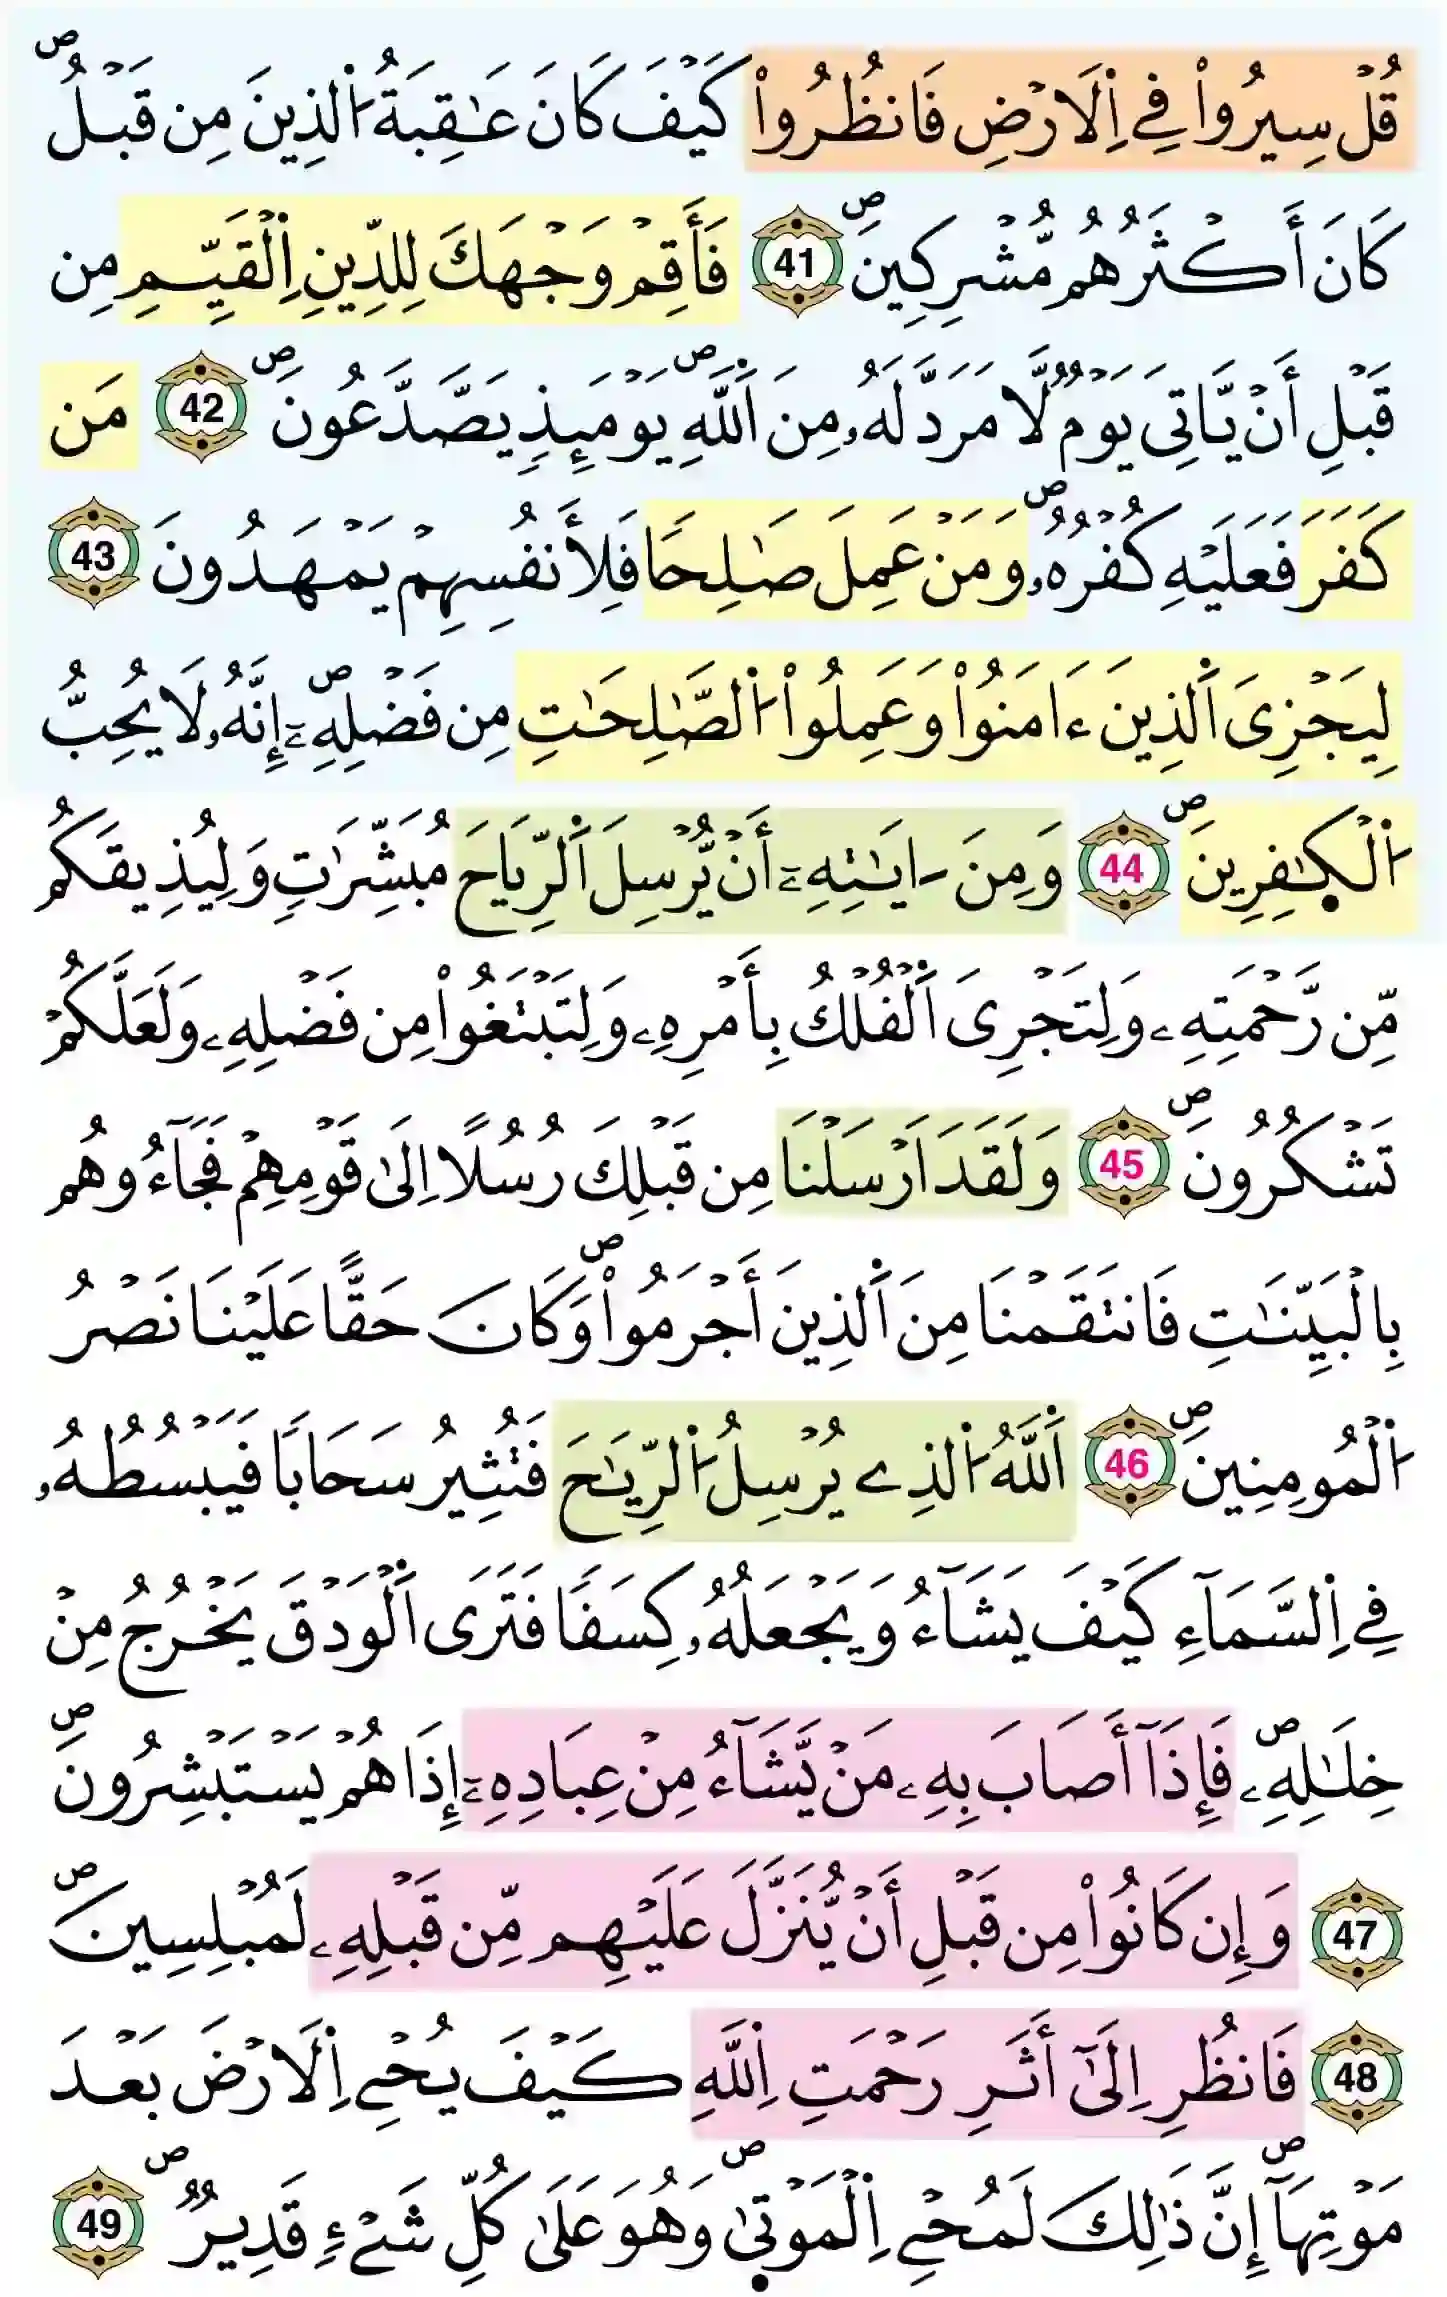 قُلْ سِيرُواْ فِے اِ۬لَارْضِ فَانظُرُواْ كَيْفَ كَانَ عَٰقِبَةُ اُ۬لذِينَ مِن قَبْلُۖ
كَانَ أَكْثَرُهُم مُّشْرِكِينَۖ 41 فَأَقِمْ وَجْهَكَ لِلدِّينِ اِ۬لْقَيِّمِ مِن
قَبْلِ أَنْ يَّاتِىَ يَوْمٌ لَّا مَرَدَّ لَهُۥ مِنَ اَ۬للَّهِۖ يَوْمَئِذٍ يَصَّدَّعُونَۖ 42 مَن
كَفَرَ فَعَلَيْهِ كُفْرُهُۥۖ وَمَنْ عَمِلَ صَٰلِحاً فَلِأَنفُسِهِمْ يَمْهَدُونَ 43
لِيَجْزِىَ اَ۬لذِينَ ءَامَنُواْ وَعَمِلُواْ اُ۬لصَّٰلِحَٰتِ مِن فَضْلِهِۦٓۖ إِنَّهُۥ لَا يُحِبُّ
اُ۬لْكٰ۪فِرِينَۖ 44 وَمِنَ اٰيَٰتِهِۦٓ أَنْ يُّرْسِلَ اَ۬لرِّيَاحَ مُبَشِّرَٰتٍ وَلِيُذِيقَكُم
مِّن رَّحْمَتِهِۦ وَلِتَجْرِىَ اَ۬لْفُلْكُ بِأَمْرِهِۦ وَلِتَبْتَغُواْ مِن فَضْلِهِۦ وَلَعَلَّكُمْ
تَشْكُرُونَۖ 45 وَلَقَدَ اَرْسَلْنَا مِن قَبْلِكَ رُسُلاً اِلَىٰ قَوْمِهِمْ فَجَآءُوهُم
بِالْبَيِّنَٰتِ فَانتَقَمْنَا مِنَ اَ۬لذِينَ أَجْرَمُواْۖ وَكَانَ حَقّاً عَلَيْنَا نَصْرُ
اُ۬لْمُومِنِينَۖ 46 اَ۬للَّهُ اُ۬لذِے يُرْسِلُ اُ۬لرِّيَٰحَ فَتُثِيرُ سَحَاباً فَيَبْسُطُهُۥ
فِے اِ۬لسَّمَآءِ كَيْفَ يَشَآءُ وَيَجْعَلُهُۥ كِسَفاً فَتَرَى اَ۬لْوَدْقَ يَخْرُجُ مِنْ
خِلَٰلِهِۦۖ فَإِذَآ أَصَابَ بِهِۦ مَنْ يَّشَآءُ مِنْ عِبَادِهِۦٓ إِذَا هُمْ يَسْتَبْشِرُونَۖ
47 وَإِن كَانُواْ مِن قَبْلِ أَنْ يُّنَزَّلَ عَلَيْهِم مِّن قَبْلِهِۦ لَمُبْلِسِينَۖ
48 فَانظُرِ اِلَىٰٓ أَثَرِ رَحْمَتِ اِ۬للَّهِ كَيْفَ يُحْيِ اِ۬لَارْضَ بَعْدَ
مَوْتِهَآۖ إِنَّ ذَٰلِكَ لَمُحْيِ اِ۬لْمَوْت۪ىٰۖ وَهُوَ عَلَىٰ كُلِّ شَےْءٍ قَدِيرٌۖ 49